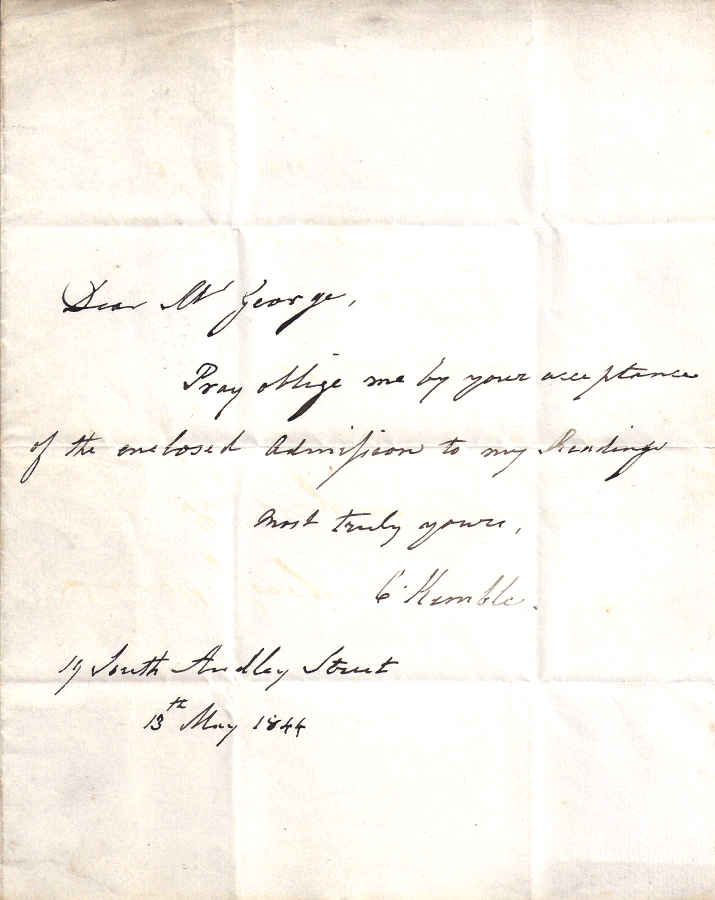 Dear Mr George,
Pray oblige me by your acceptance
of the enclosed Admission to my Readings
most truly yours,
C. Kemble.
19 South Audley Street
13th May 1844